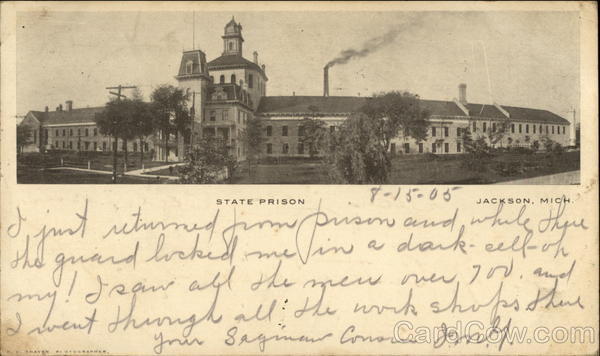 STATE PRISON
8-15-05
JACKSON, MICH.
I just returned from prison and while there
the guard locked me in a dark-cell-oh
my! I saw all the men over 700. and
I went through all the work shops there
Your Saginaw
PHOTOGRAPHER.
CardCow.com